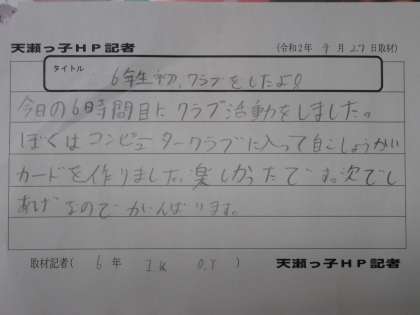 天瀬っ子HP記者
(令和2年 9月 27日取材)
タイトル
6年生初、クラブをしたよ!
今日の6時間目にクラブ活動をしました。
ぼくはコンピュータークラブに入って自こしょうかい
カードを作りました。楽しかったです。次でし
あげなのでがんばります。
取材記者( 6 年 I K O.T )
天瀬っ子HP記者